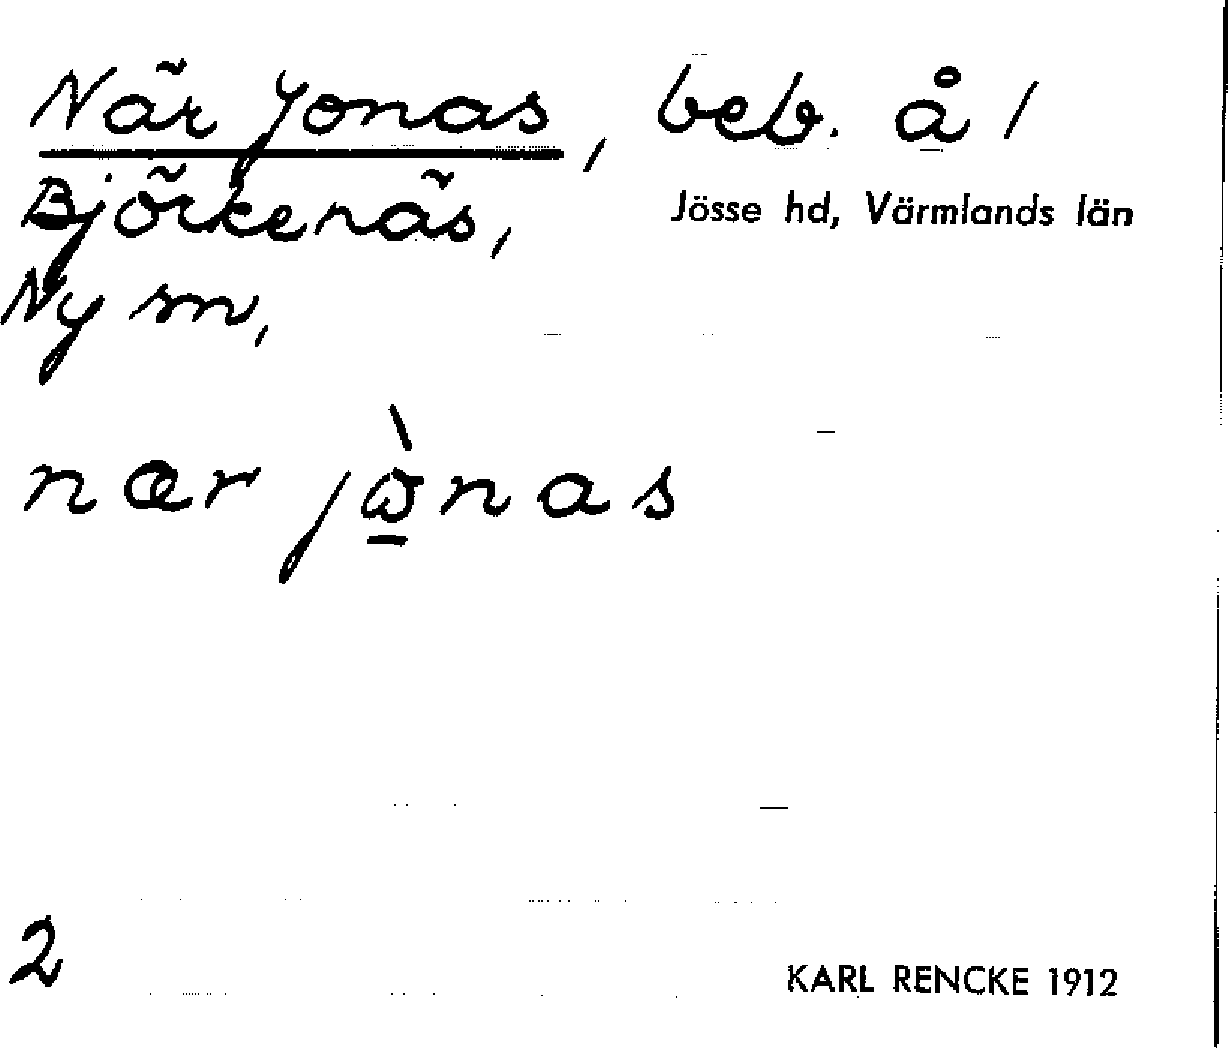 När Jonas, beb. å /
Björkenäs,
Jösse hd, Värmlands län
Ny sn,
nær jὼnas
2
KARL RENCKE 1912